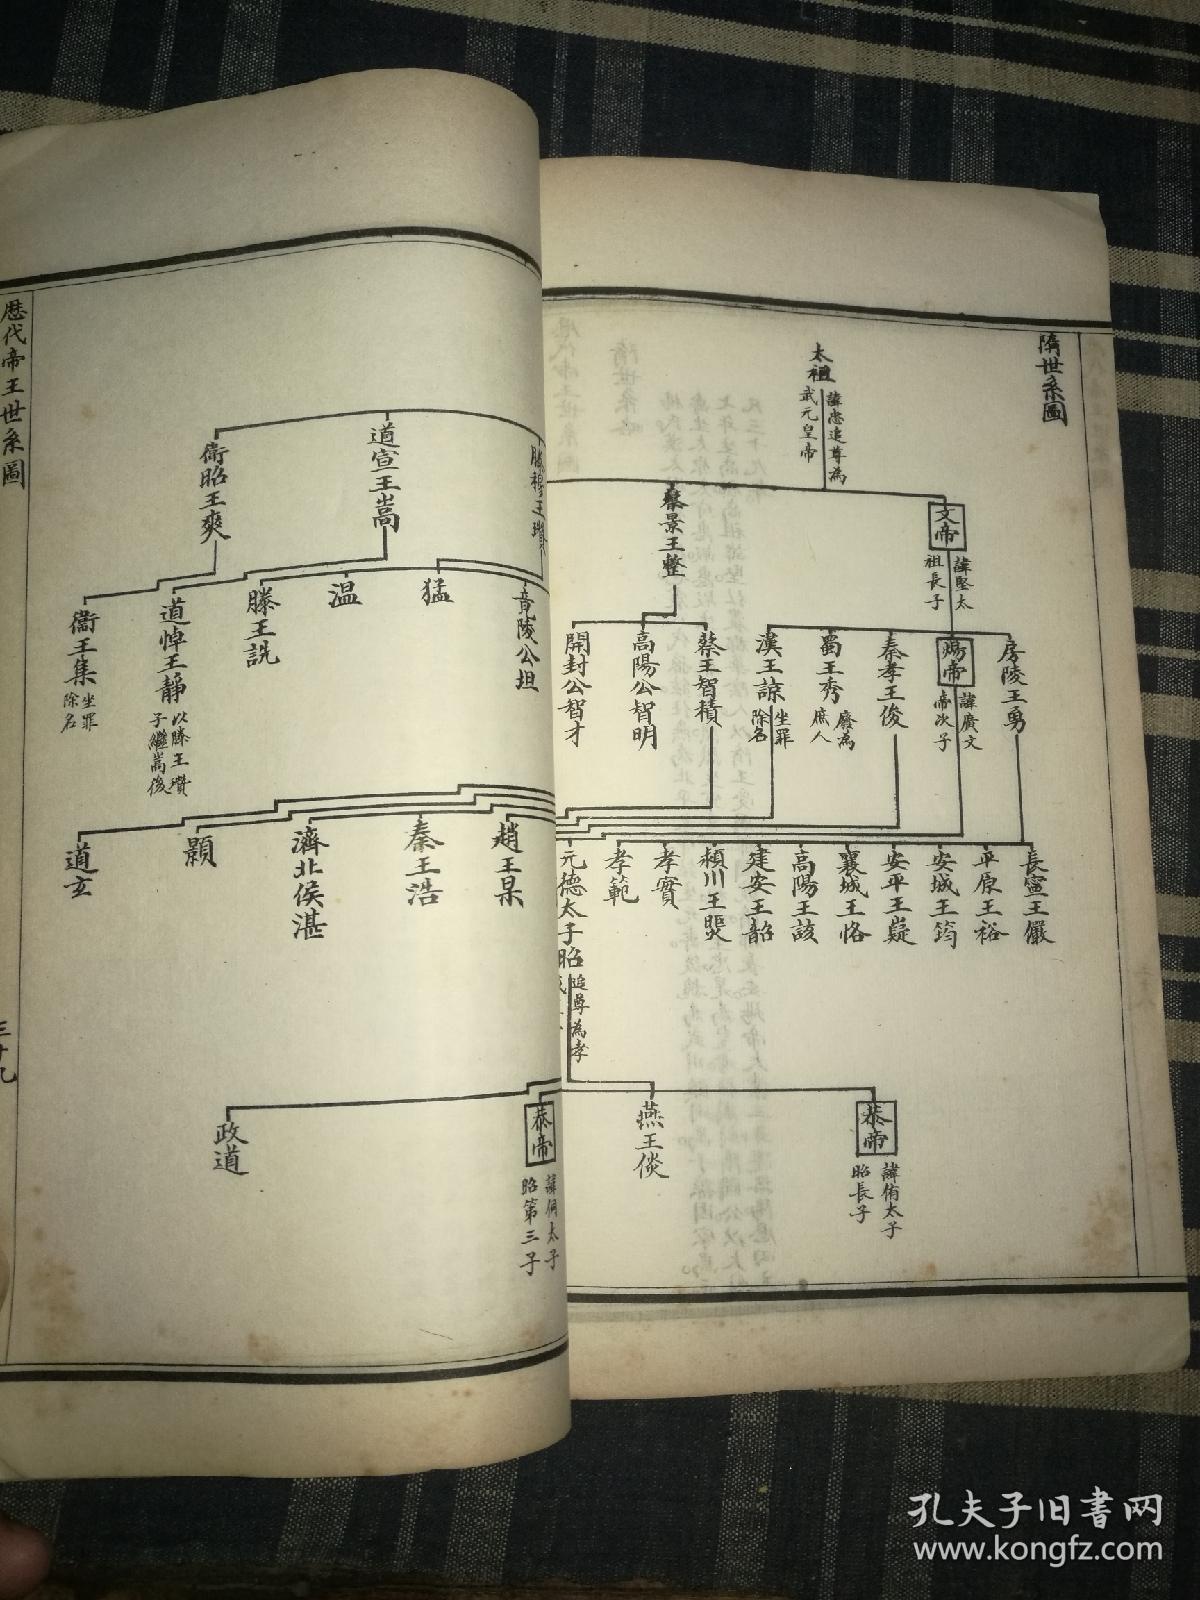 隋世系圖
太祖
諱忠追尊為
武元皇帝
文帝
諱堅太
祖長子
蔡景王整
房陵王勇
煬帝
諱廣文
帝次子
秦孝王俊
蜀王秀
廢為
庶人
漢王諒
坐罪
除名
蔡王智積
高陽公智明
開封公智才
長寧王儼
平原王裕
安城王筠
安平王嶷
襄城王恪
高陽王該
建安王韶
潁川王煚
孝實
孝範
元德太子昭
追尊為孝
恭帝
諱侑太子
昭長子
燕王倓
滕穆王瓚
道宣王嵩
衛昭王爽
竟陵公坦
猛
温
滕王詵
道悼王靜
以滕王瓚
子繼嵩後
衞王集
坐罪
除名
趙王杲
秦王浩
濟北侯湛
顥
道玄
恭帝
諱侗太子
昭第三子
政道
歷代帝王世系圖
三十九
孔夫子旧书网
www.kongfz.com